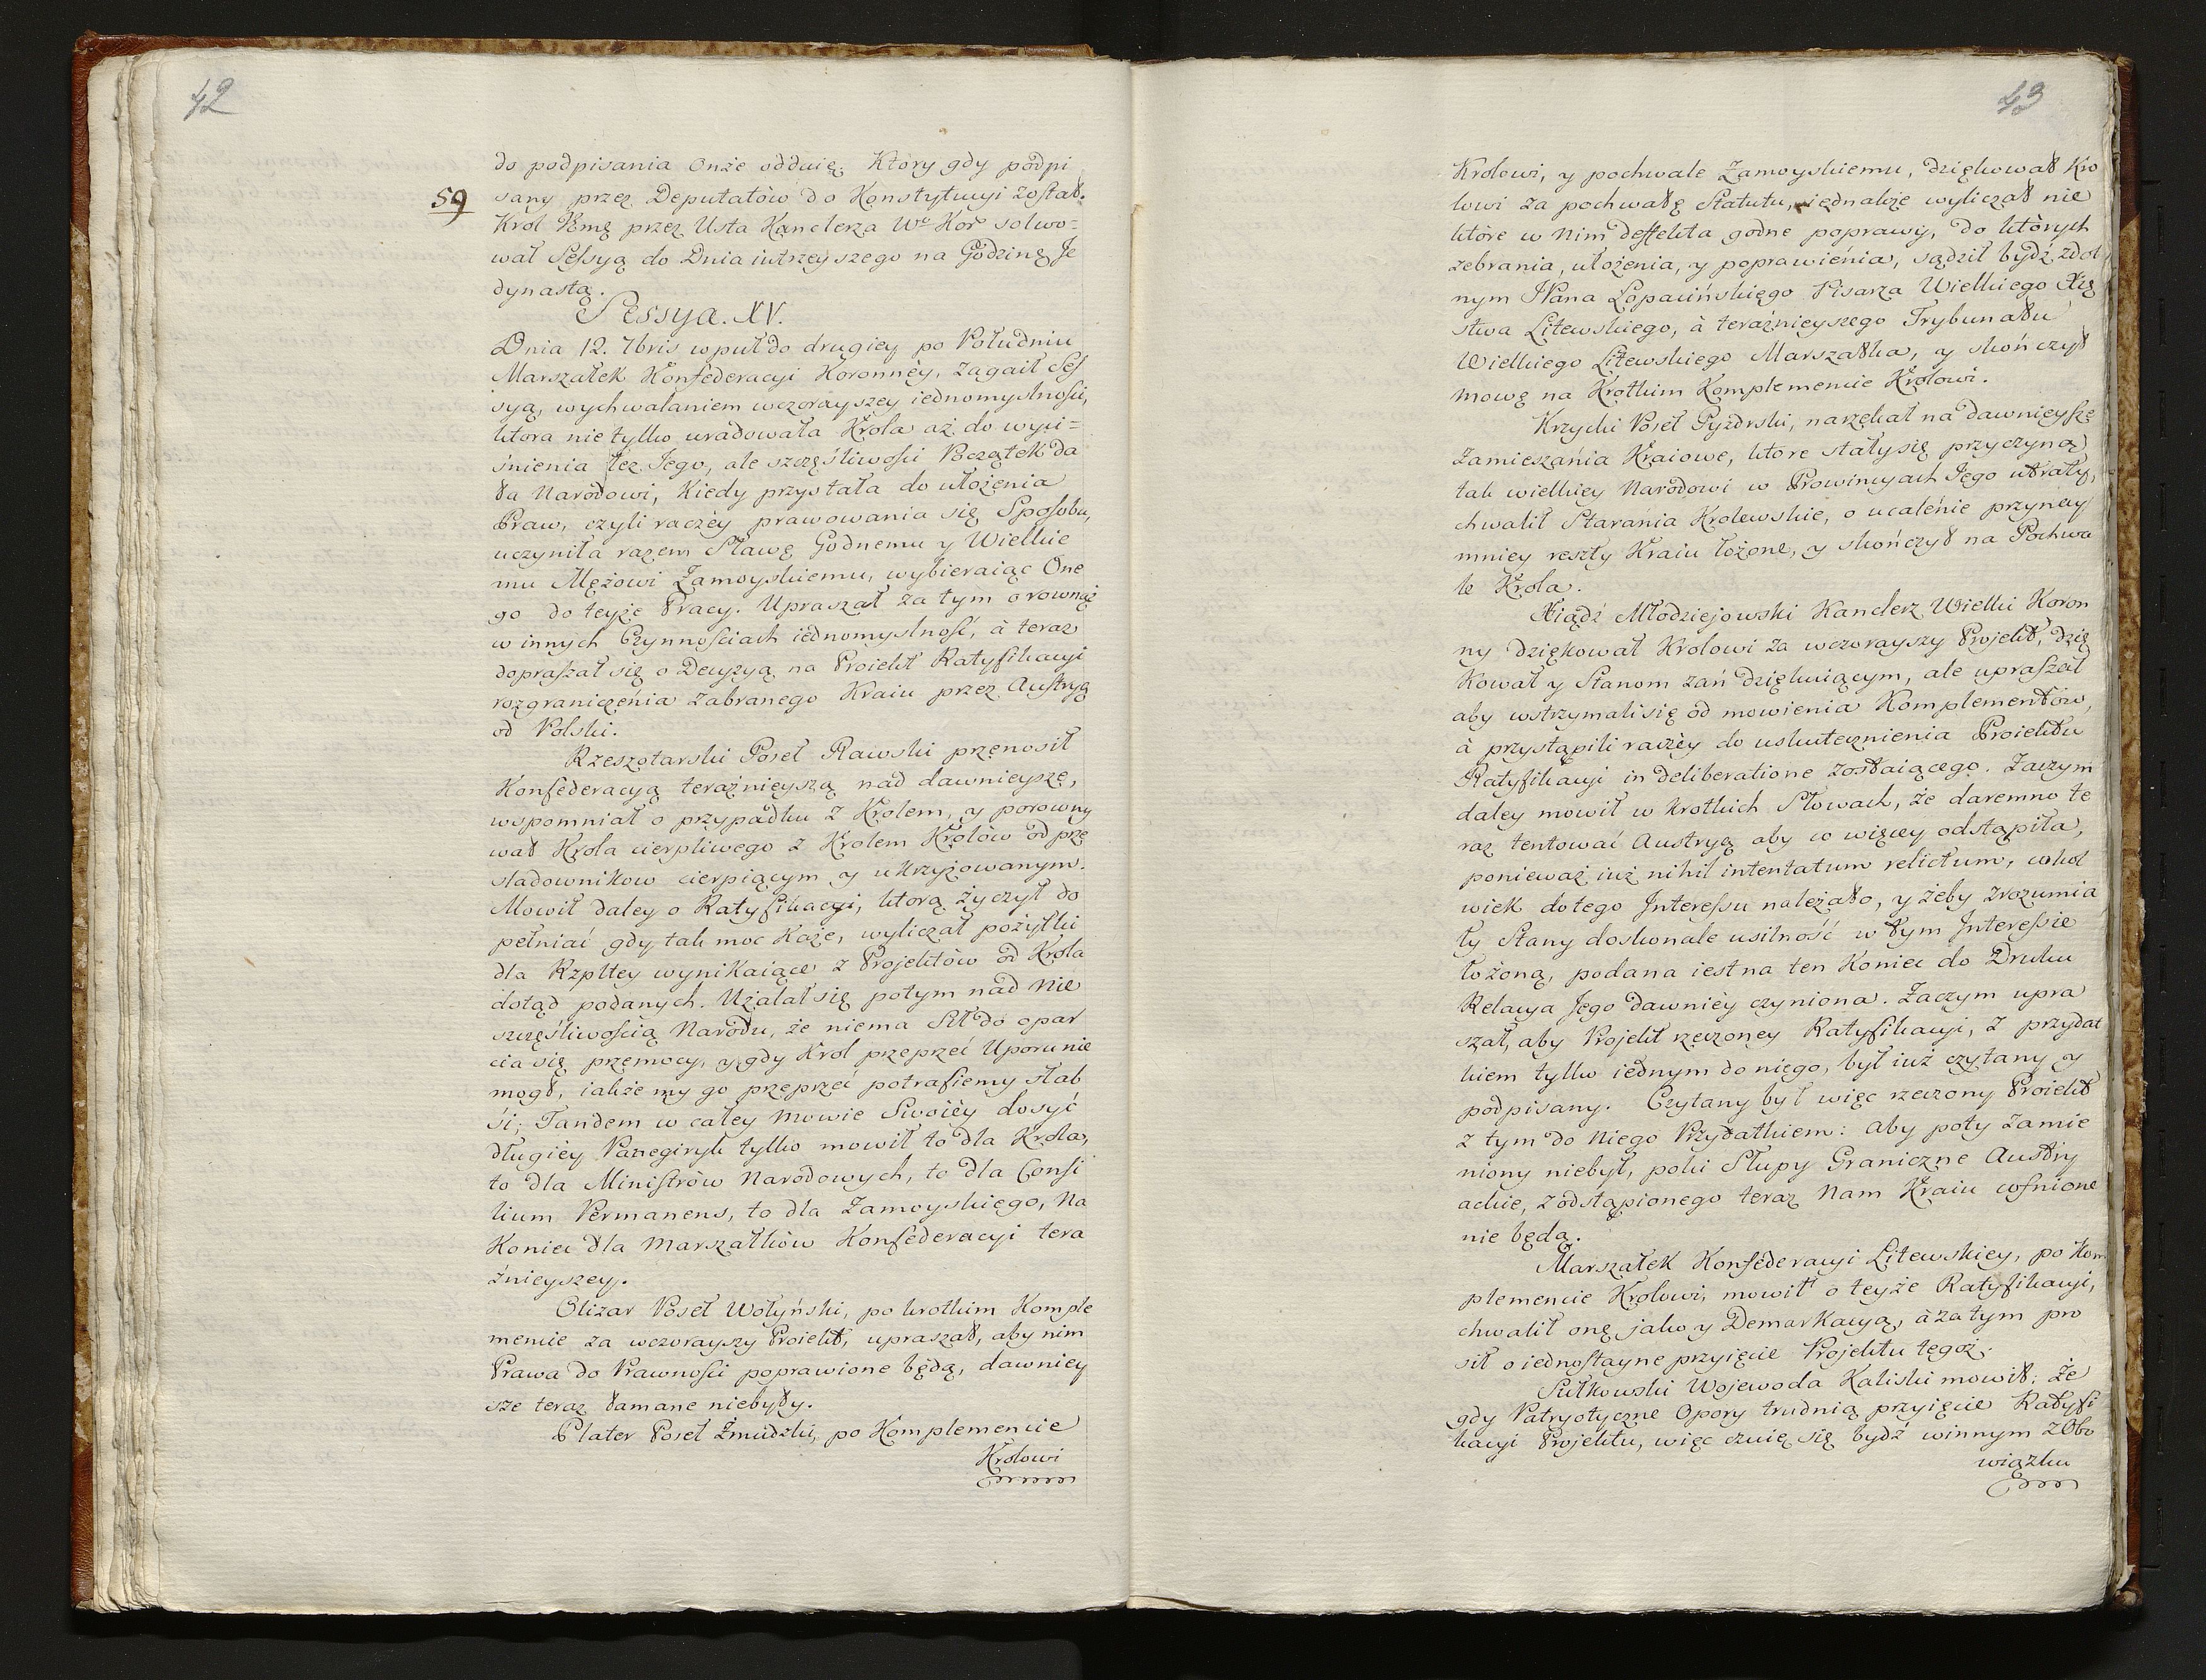 42
do podpisania Onże odduię. Który gdy podpi
59 sany przez Deputatòw do Konstytucyi został.
Krol Jmę przez Usta Kanclerza We Kor solwo=
wał Sessyą do Dnia iutrzeyszego na Godzinę Je
dynastą.
Sessya. XV.
Dnia 12. 7bris wpuł do drugiey po Południu
Marszałek Konfederacyi Koronney, zagaił Ses
syą, wychwalaniem wczorayszey iednomyslności,
ktora nie tylko uradowała Krola aż do wyci=
śnienia łez Jego, ale szczęśliwości Początek da
ła Narodowi, Kiedy przystała do ułożenia
Praw, czyli raczèy prawowania się Sposobu,
uczyniła razem Sławę Godnemu y Wielkie
mu Mężowi Zamoyskiemu, wybieraiąc One
go do teyże Pracy. Upraszał za tym o rowną
w innych Czynnościach iednomyslność, à teraz
dopraszał się o Decyzyą na Proiekt Ratyfikacyi
rozgraniczęnia zabranego Kraiu przez Austryą
od Polski.
Rzeszotarski Poseł Rawski przenosił
Konfederacyą teraźnięyszą nad dawnieysze,
wspomniał o przypadku z Krolem, y porowny
wał Krola cierpliwego z Krolem Krolòw od prze
sladownikow cierpiącym y ukrzyżowanym.
Mowił daley o Ratyfikacyi, ktorą życzył do
pełniać gdy tak moc Każe, wyliczał pożytki
dla Rzpltey wynikaiące z Projektòw od Krola
dotąd podanych. Użalał się potym nad nie
szczęśliwością Narodu, że niema Sił do opar
cia się przemocy, y gdy Krol przeprzeć Uporu nie
mogł, iakże my go przeprzeć potrafiemy słab
śi; Tandem w całey mowie Swoièy dosyć
długièy Panegiryk tylko mowił to dla Krola,
to dla Ministròw Narodowych, to dla Consi
lium Permanens, to dla Zamoyskiego, na
Koniec dla Marszałkòw Konfederacyi tera
źnieyszey.
Olizar Poseł Wołyński, po krotkim Komple
mencie za wczorayszy Proiekt, upraszał, aby nim
Prawa do Prawności poprawione będą, dawniey
sze teraz łamane niebyły.
Plater Poseł Żmudzki, po Komplemencie
Krolowi
43
Krolowi, y pochwale Zamoyskiemu, dziękował Kro
lowi za pochwałę Statutu, iednakże wyliczał nie
ktòre w nim deffekta godne poprawy, do ktòrych
zebrania, ułożenia, y poprawiénia, sądził bydź zdol
nym JPana Łopacińskięgo Pisarza Wielkiego Xię
stwa Litewskiego, à teraźnieyszego Trybunału
Wielkiego Litewskiego Marszałka, y skończył
mowę na Krotkim Komplemencie Krolowi.
Krzycki Poseł Pyzdrski, narzękał na dawnięysze
zamieszánia Kraiowe, ktore stały się przyczyną
tak wielkiey Narodowi w Prowincyach Jego utraty,
chwalił Starania Krolewskie, o ucalénie przynay
mniey reszty Kraiu łożone, y skończył na Pochwa
le Krola.
Xiądź Młodziejowski Kanclerz Wielki Koron
ny dziękował Krolowi za wczorayszy Projekt, dzię
kował y Stanom zań dziękuiącym, ale upraszał
aby wstrzymali się od mowienia Komplementòw,
à przystąpili raczèy do uskutecznienia Proiektu
Ratyfikacyi in deliberatione zostaiącego. Zaczym
daley mowił w krotkich Słowach, że daremno te
raz tentować Austryą aby co więcey odstąpiła,
ponieważ iuż nihil intentatum relictum, cokol
wiek do tego Interessu należało, y żeby zrozumia
ły Stany doskonale usilność w tym Interessie
łożoną, podana iest na ten Koniec do Druku
Relacya Jego dawniéy czyniona. Zaczym upra
szał, aby Projekt rzeczoney Ratyfikacyi, z przydat
kiem tylko iednym do niego, był iuż czytany y
podpisany. Czytany był więc rzeczony Proiekt
z tym do niego Przydatkiem: aby poty zamie
niony niebył, poki Słupy Graniczne Austry
ackie, z odstąpionego teraz nam Kraiu cofnione
nie będą.
Marszałek Konféderacyi Litewskiey, po Kom
plemencie Krolowi, mowił o teyże Ratyfikacyi,
chwalił onę jako y Demarkacyą, à za tym pro
sił o iednostayne przyięcie Projektu tęgoż.
Sułkowski Wojewoda Kaliski mowił; Że
gdy Patryotyczne Opory trudnią przyięcie Ratyfi
kacyi Projektu, więc czuię się bydź winnym z Obo
wiązku